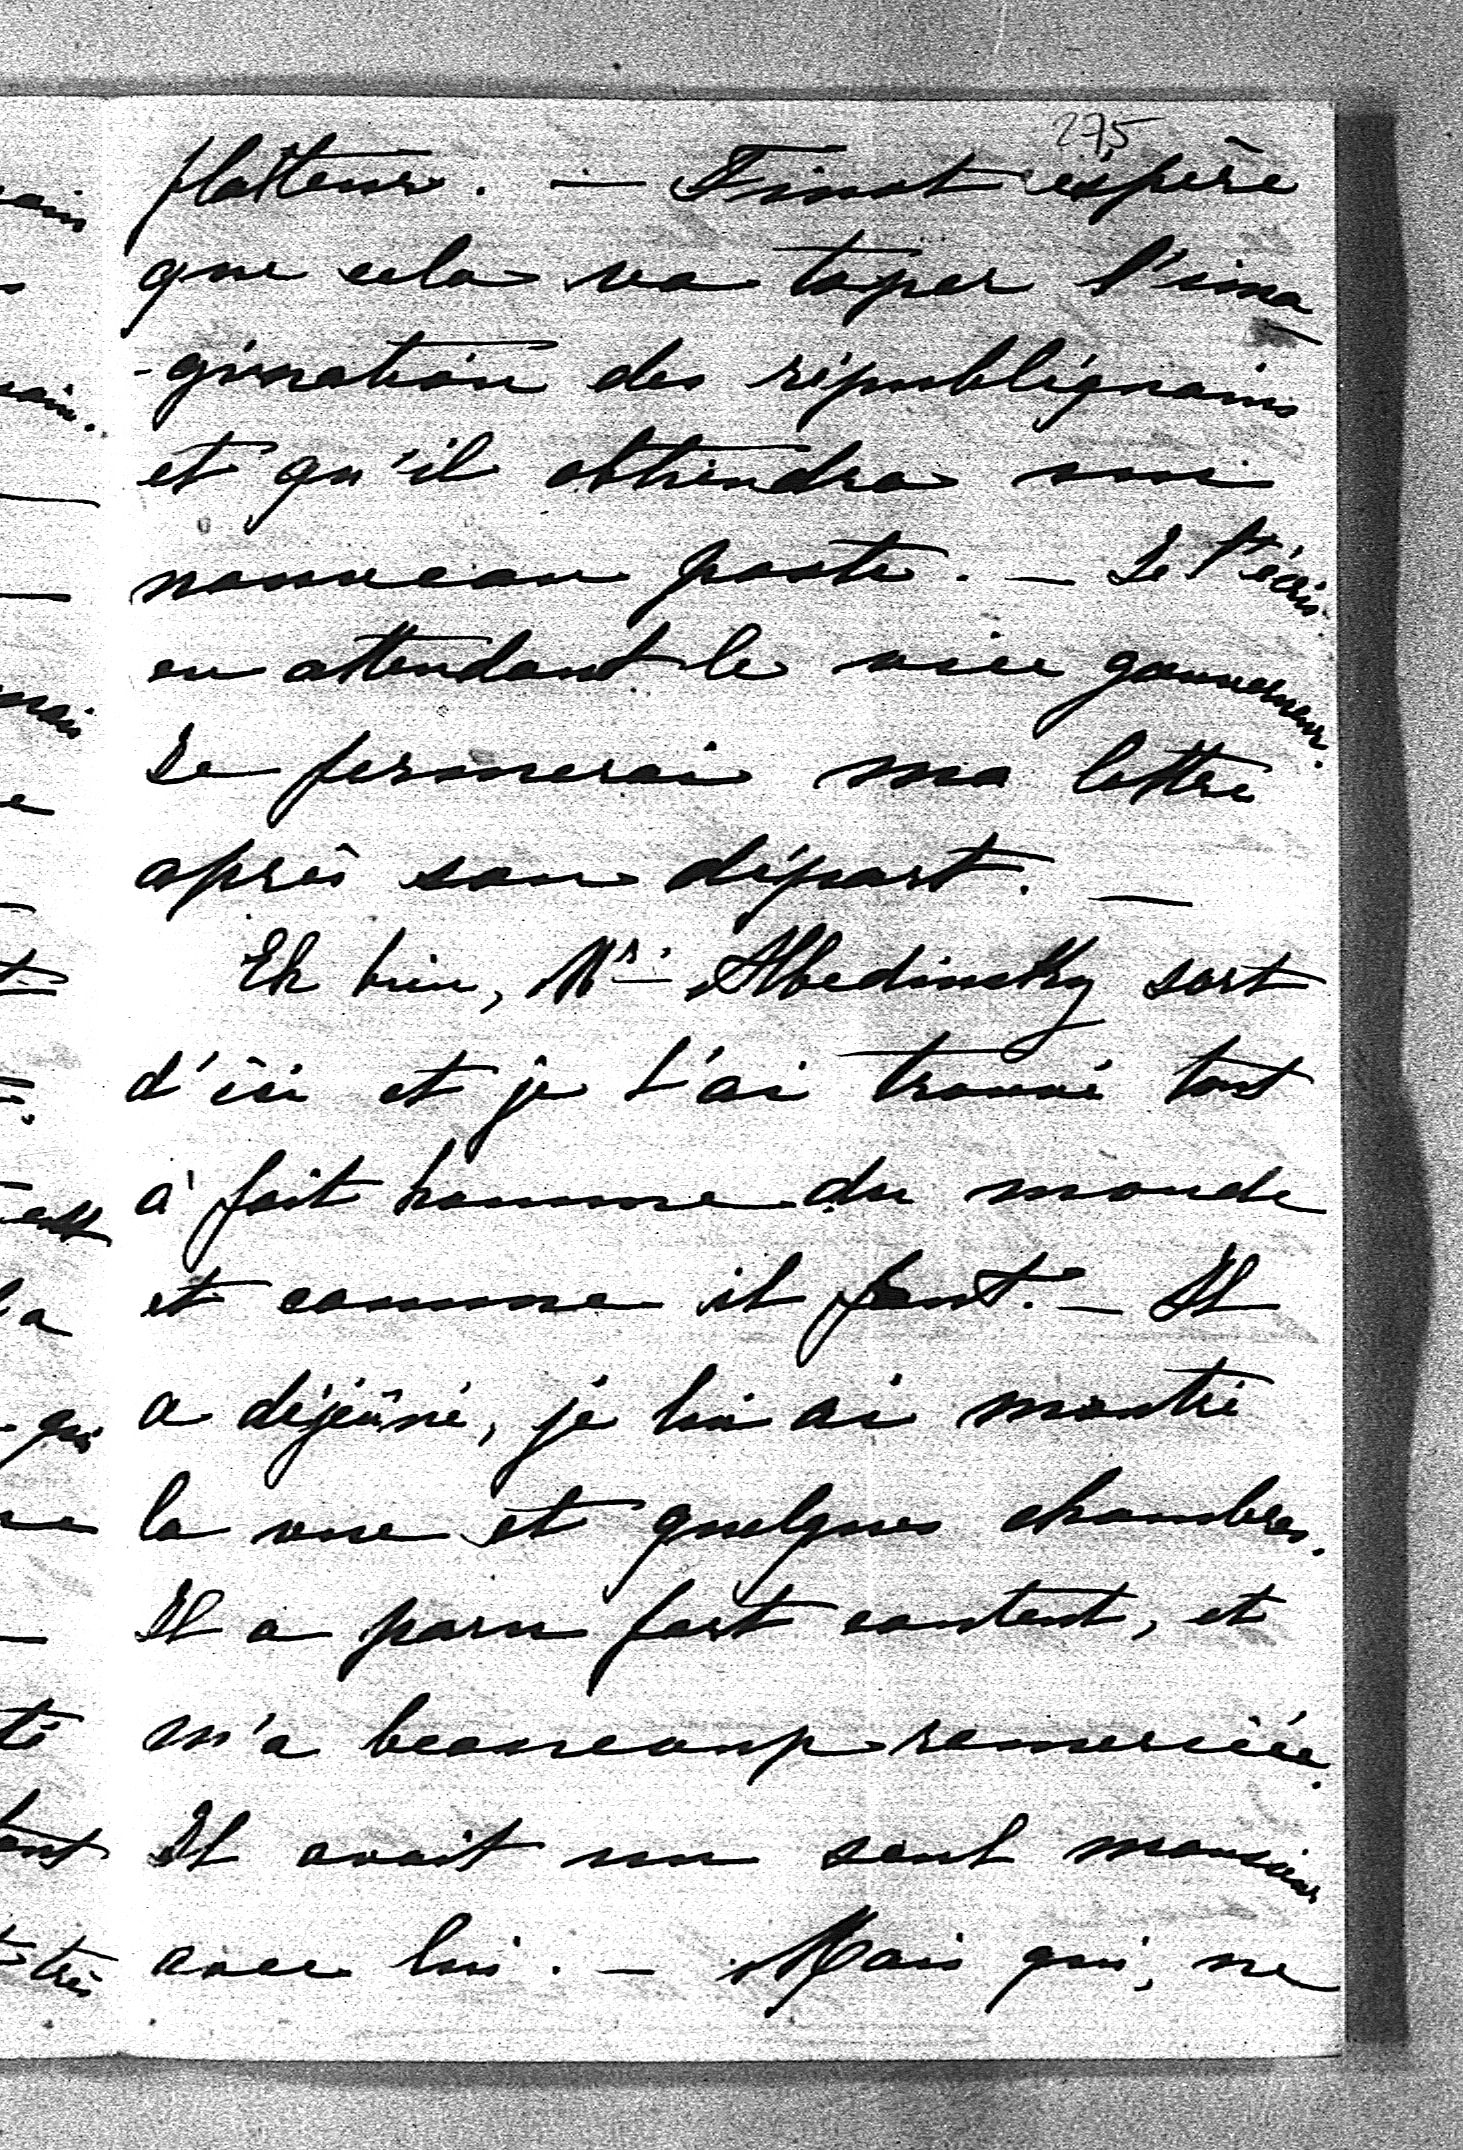 275
flatteur. — Finot espère
que cela va taper l'ima
-gination des républiquains
et qu'il obtiendra un
nouveau poste. — Je t'écris
en attendant le vice gouverneur.
Je fermerai ma lettre
après son départ. —
Eh bien, Mr. Albedinsky sort
d'ici et je l'ai trouvé tout
à fait homme du monde
et comme il faut. — Il
a déjeûné, je lui ai montré
la vue et quelques chambres.
Il a paru fort content, et
m'a beaucoup remerciée.
Il avait un seul monsieur
avec lui. — Mais qui, ne